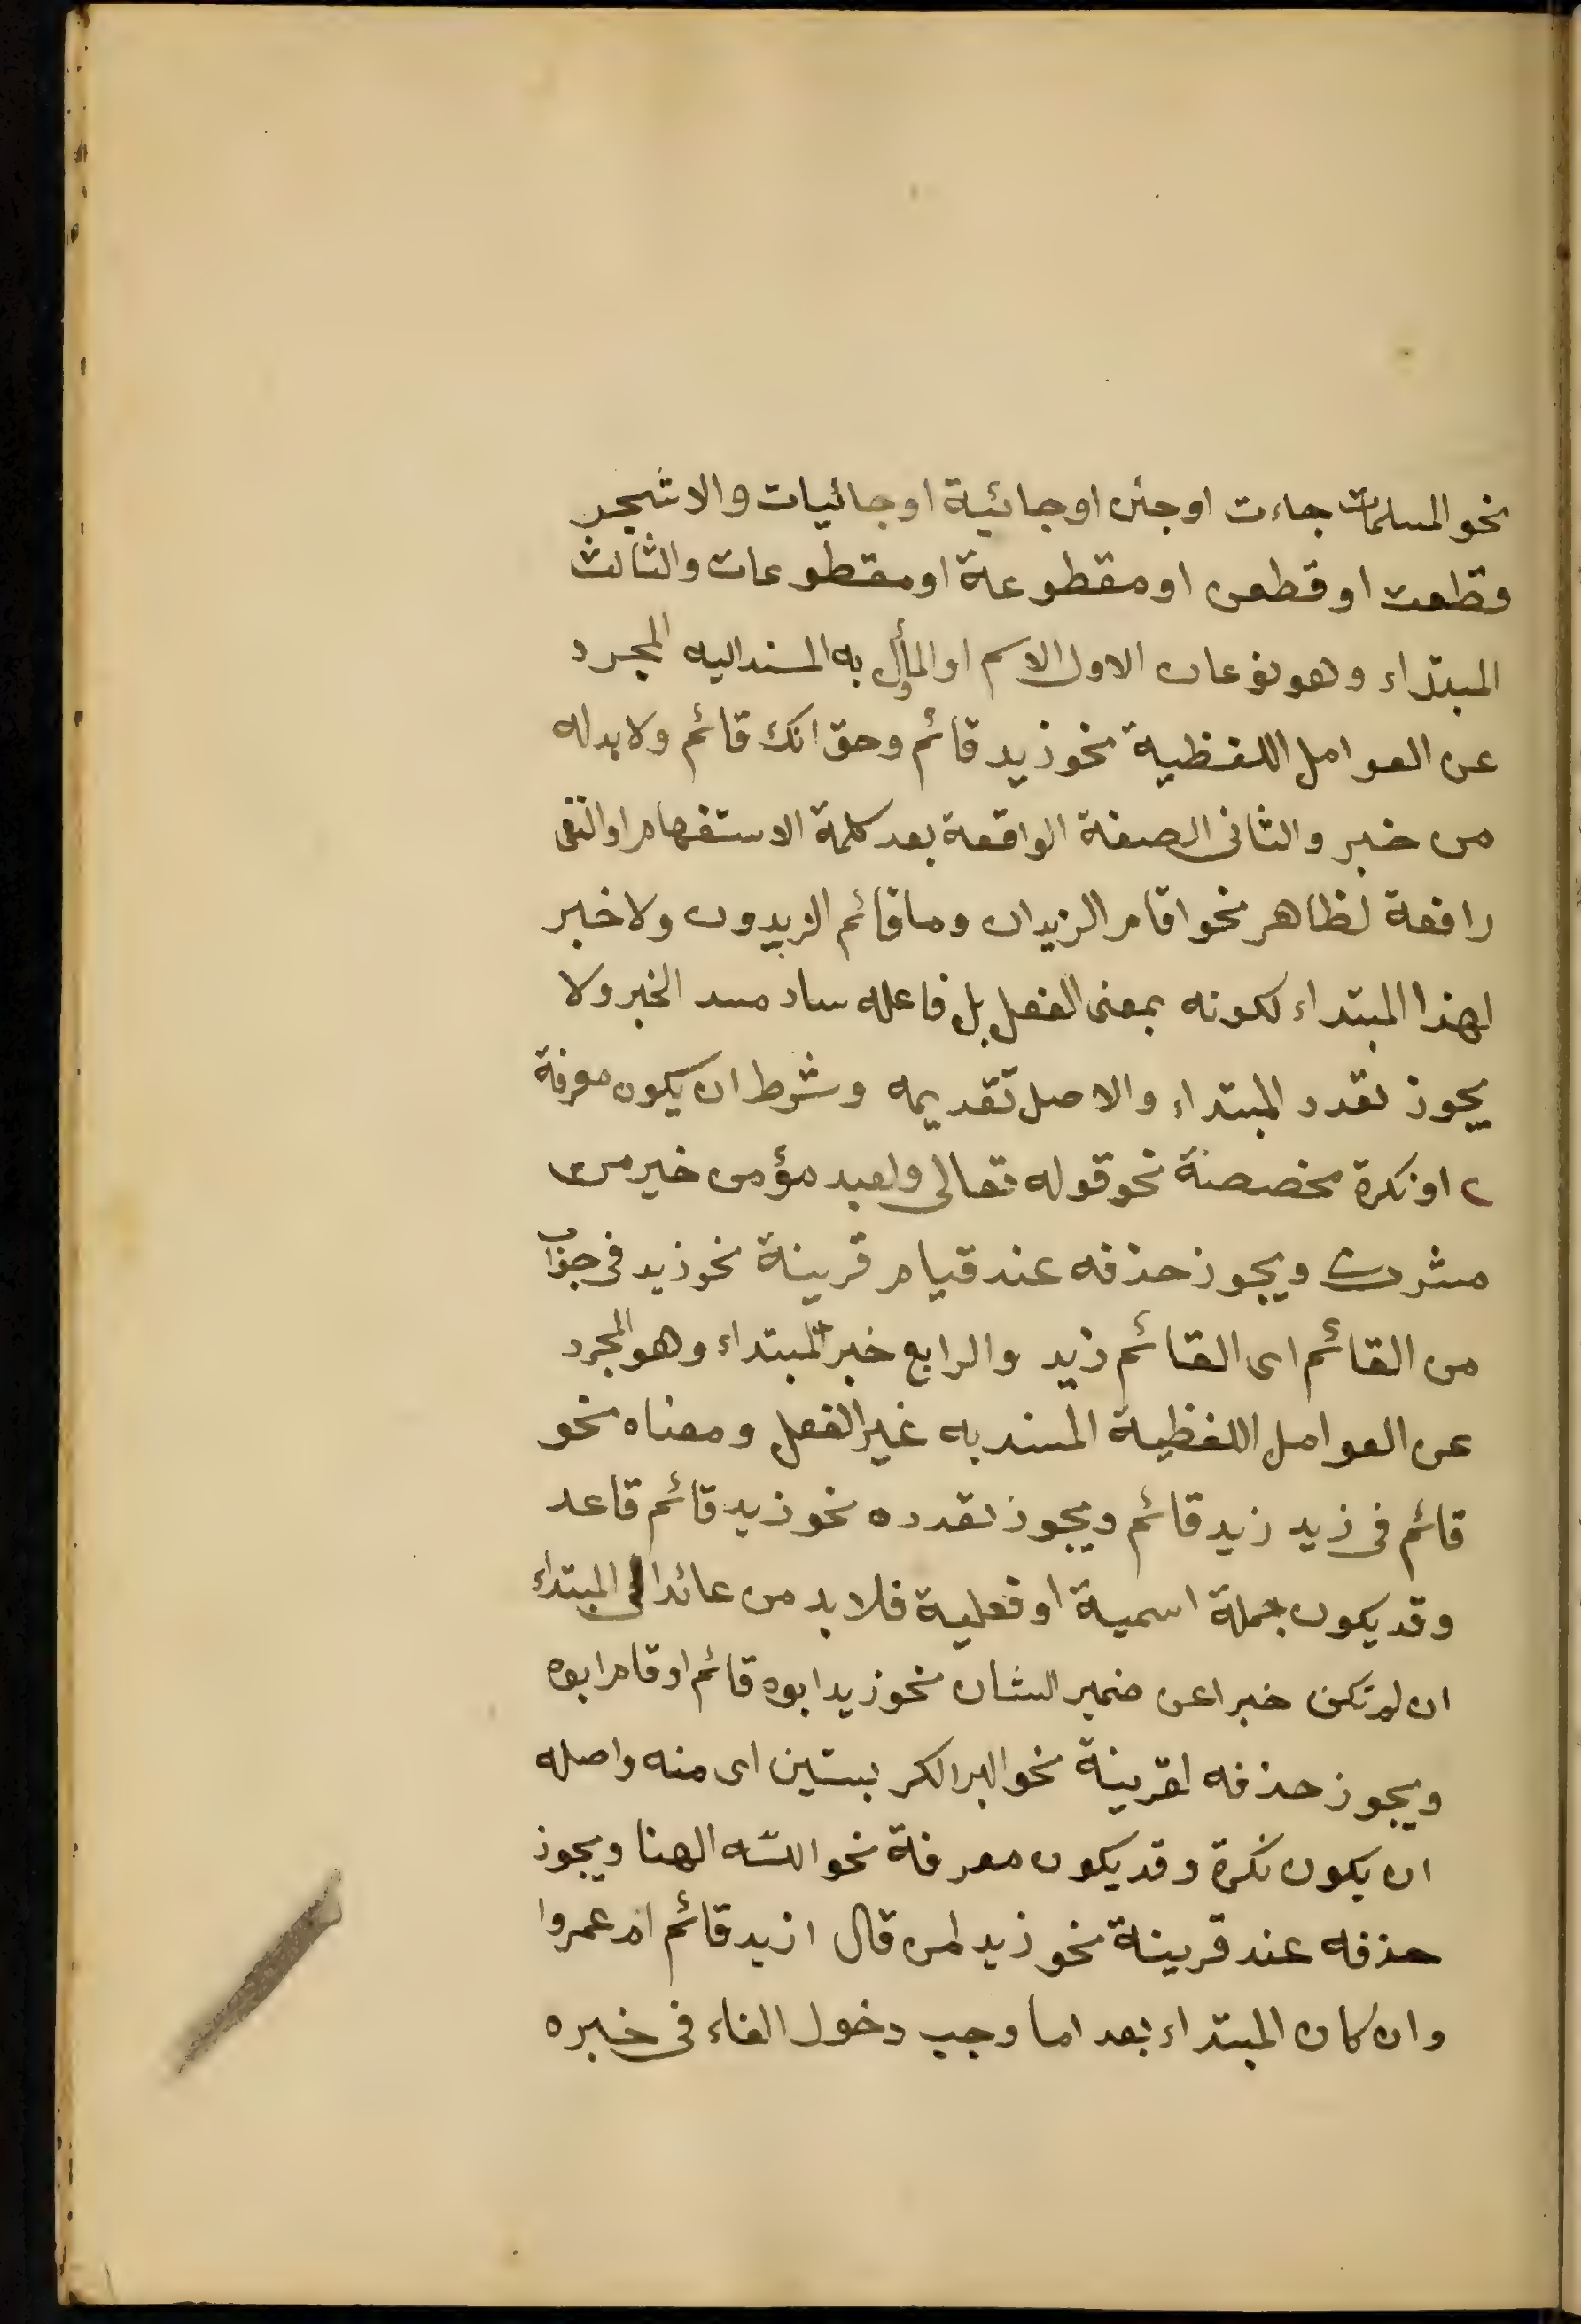 نحو المسلمات جاءت او جئن او جائية او جائيات والاشجر
قطعت او قطعن او مقطوعة او مقطوعات والثالث
المبتداء وهو نوعان الاول الاسم او المأول به المسند اليه المجرد
عن العوامل اللفظية نحو زيد قائم وحق انك قائم ولا بد له
من خبر والثانى الصفة الواقعة بعد كلمة الاستفهام او النفى
رافعة لظاهر نحو اقام الزيدان وما قائم الزيدون ولا خبر
لهذا المبتداء لكونه بمعنى الفعل بل فاعله ساد مسد الخبر ولا
يجوز تعدد المبتداء والاصل تقديمه وشرط ان يكون معرفة
او نكرة مخصصة نحو قوله تعالى ولعبد مؤمن خير من
مشرك ويجوز حذفه عند قيام قرينة نحو زيد فى جواب
من القائم اى القائم زيد والرابع خبر المبتداء وهو المجرد
عن العوامل اللفظية المسند به غير الفعل ومعناه نحو
قائم فى زيد زيد قائم ويجوز تعدده نحو زيد قائم قاعد
وقد يكون جملة اسمية او فعلية فلا بد من عائد الى المبتداء
ان لم تكن خبرا عن ضمير الشان نحو زيد ابوه قائم او قام ابوه
ويجوز حذفه لقرينة نحو البر الكر بستين اى منه واصله
ان يكون نكرة وقد يكون معرفة نحو الله الهنا ويجوز
حذفه عند قرينة نحو زيد لمن قال ازيد قائم ام عمروا
وان كان المبتداء بعد اما وجب دخول الفاء فى خبره